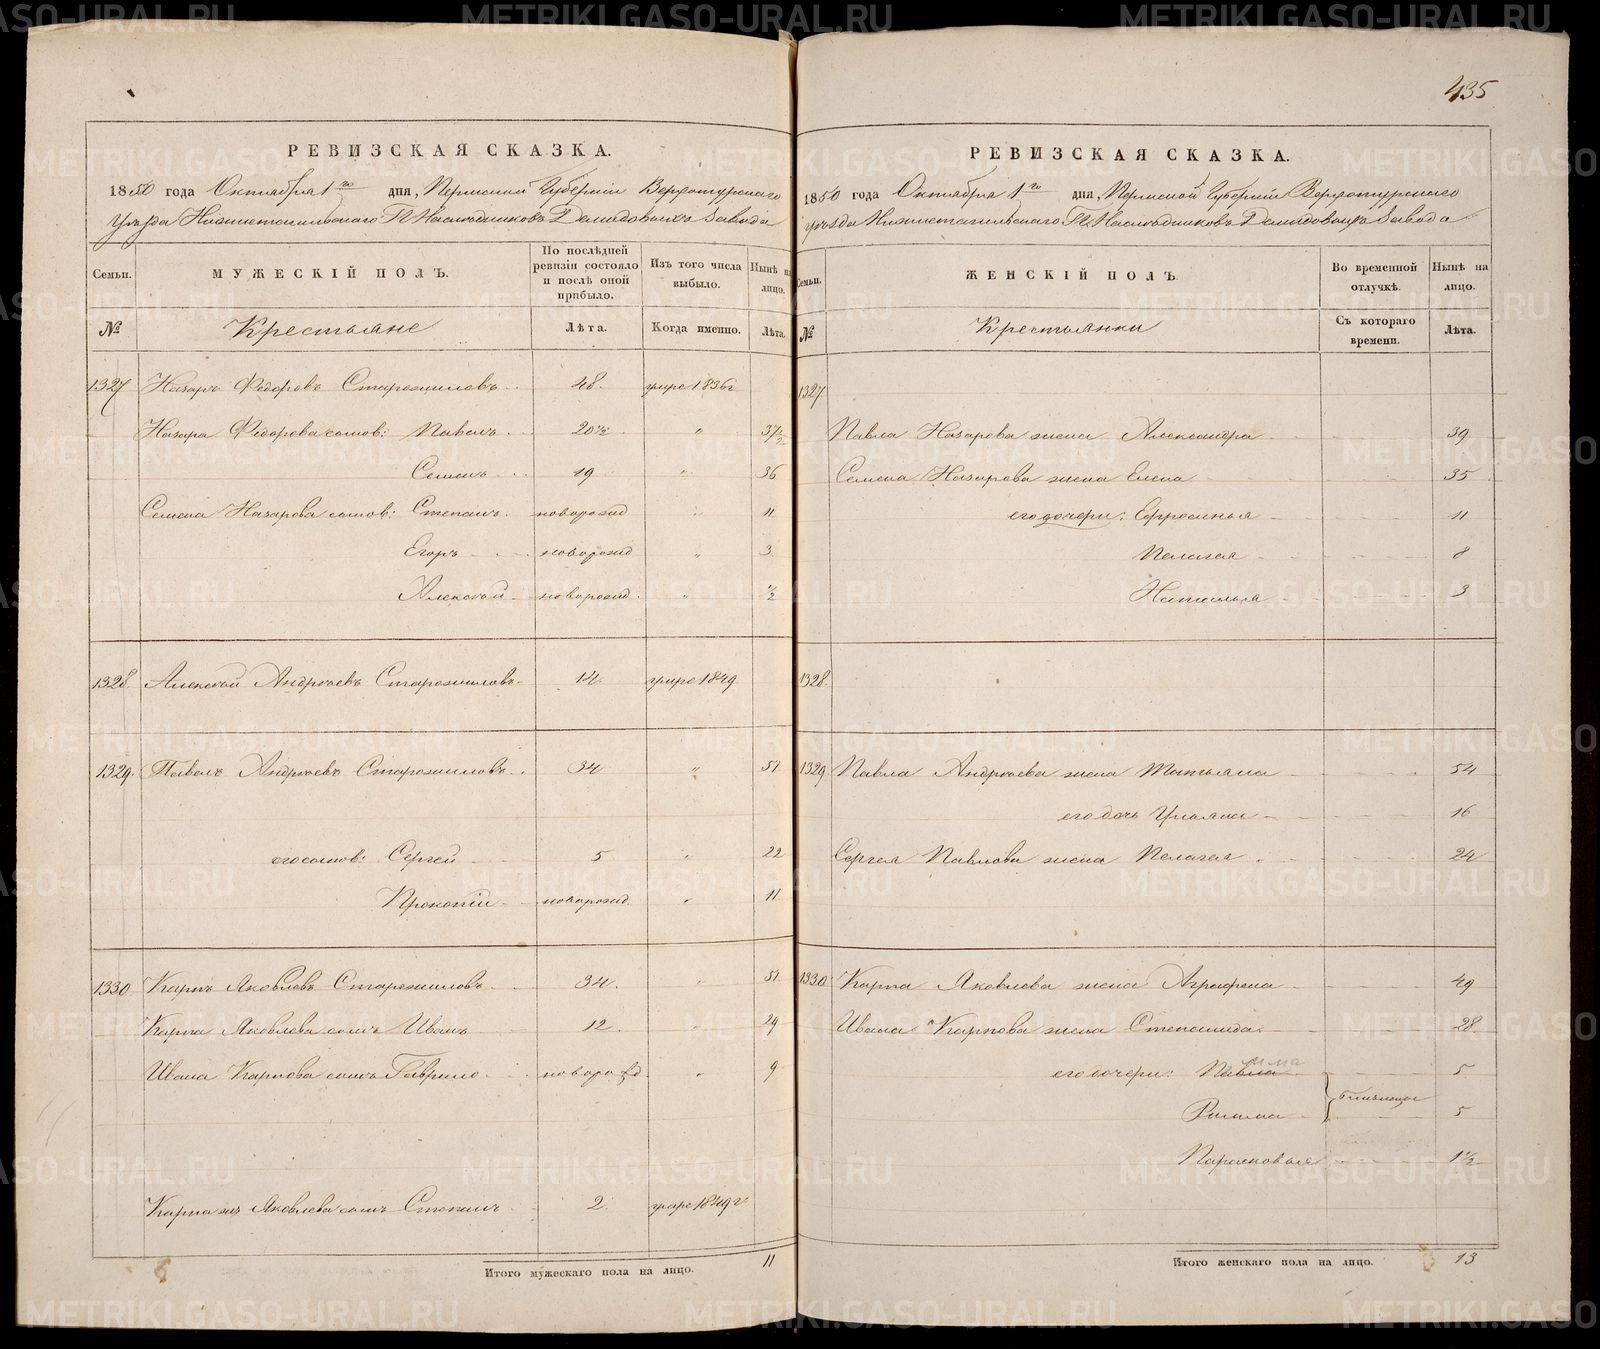 435
РЕВИЗСКАЯ СКАЗКА.
1850 года Октября 1го дня, Пермской Губерніи Верхотурскаго
Уѣзда Нижнетагильскаго Гг. Наслѣдниковъ Демидовыхъ Завода
Семьи. МУЖЕСКІЙ ПОЛЪ. По послѣдней ревизіи состояло и послѣ оной прибыло. Изъ того числа выбыло. Нынѣ на лицо.
№ Крестьяне Лѣта. Когда именно. Лѣта.
1327 Назаръ Федоровъ Старожиловъ 48. умре 1836г
Назара Федорова сынов: Павелъ 20½ " 37½
Семенъ 19 " 36
Семена Назарова сынов: Степанъ новорожд " 11
Егоръ новорожд " 3
Алексѣй новорожд " ½
1328. Алексѣй Андреевъ Старожиловъ 14. умре 1849
1329. Павелъ Андреевъ Старожиловъ 34 " 51
его сынов: Сергей 5 " 22
Прокопій новорожд. " 11
1330 Карпъ Яковлевъ Старожиловъ 34. " 51.
Карпа Яковлева сынъ Иванъ 12. " 29
Ивана Карпова сынъ Гаврило новорожд. " 9
Карпа Яковлева сынъ Степанъ 2. умре 1849 г
Итого мужескаго пола на лицо. 11
РЕВИЗСКАЯ СКАЗКА.
1850 года Октября 1го дня, Пермской Губерніи Верхотурскаго
уѣзда Нижнетагильскаго Гг. Наслѣдниковъ Демидовыхъ Завода
Семьи. ЖЕНСКІЙ ПОЛЪ. Во временной отлучкѣ. Нынѣ на лицо.
№ Крестьянки Съ котораго времени. Лѣта.
1327.
Павла Назарова жена Александра 39
Семена Назарова жена Елена 35
его дочери: Ефросинья 11
Пелагея 8
Наталья 3
1328.
1329 Павла Андреева жена Татьяна 54
его дочь Ульяна 16
Сергея Павлова жена Пелагея 24
1330 Карпа Яковлева жена Аграфена 49
Ивана Карпова жена Степанида 28
его дочери: Павла 5
Римма близнецы 5
Парасковья 1½
Итого женскаго пола на лицо. 13
METRIKI.GASO-URAL.RU